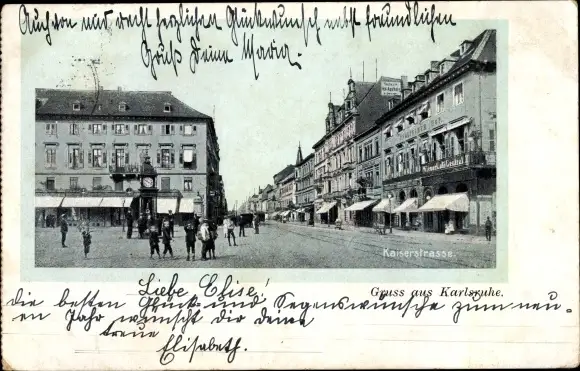 Auch von mir recht herzlichen Glückwunsch nebst freundlichen
Gruß Deine Maria.
Kaiserstrasse.
Gruss aus Karlsruhe.
Liebe Elise!
die besten Glück- und Segenswünsche zum neu-
en Jahr wünscht dir deine
treue
Elisabeth.